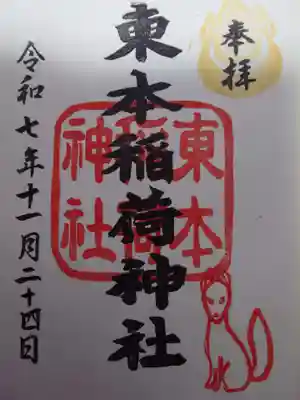 奉拝
東本稲荷神社
東本
稲荷
神社
令和七年十一月二十四日